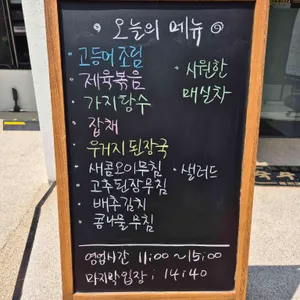 오늘의 메뉴
고등어조림
제육볶음
가지탕수
잡채
우거지된장국
새콤오이무침
고추된장무침
배추김치
콩나물무침
시원한
매실차
샐러드
영업시간 11:00~15:00
마지막입장: 14:40